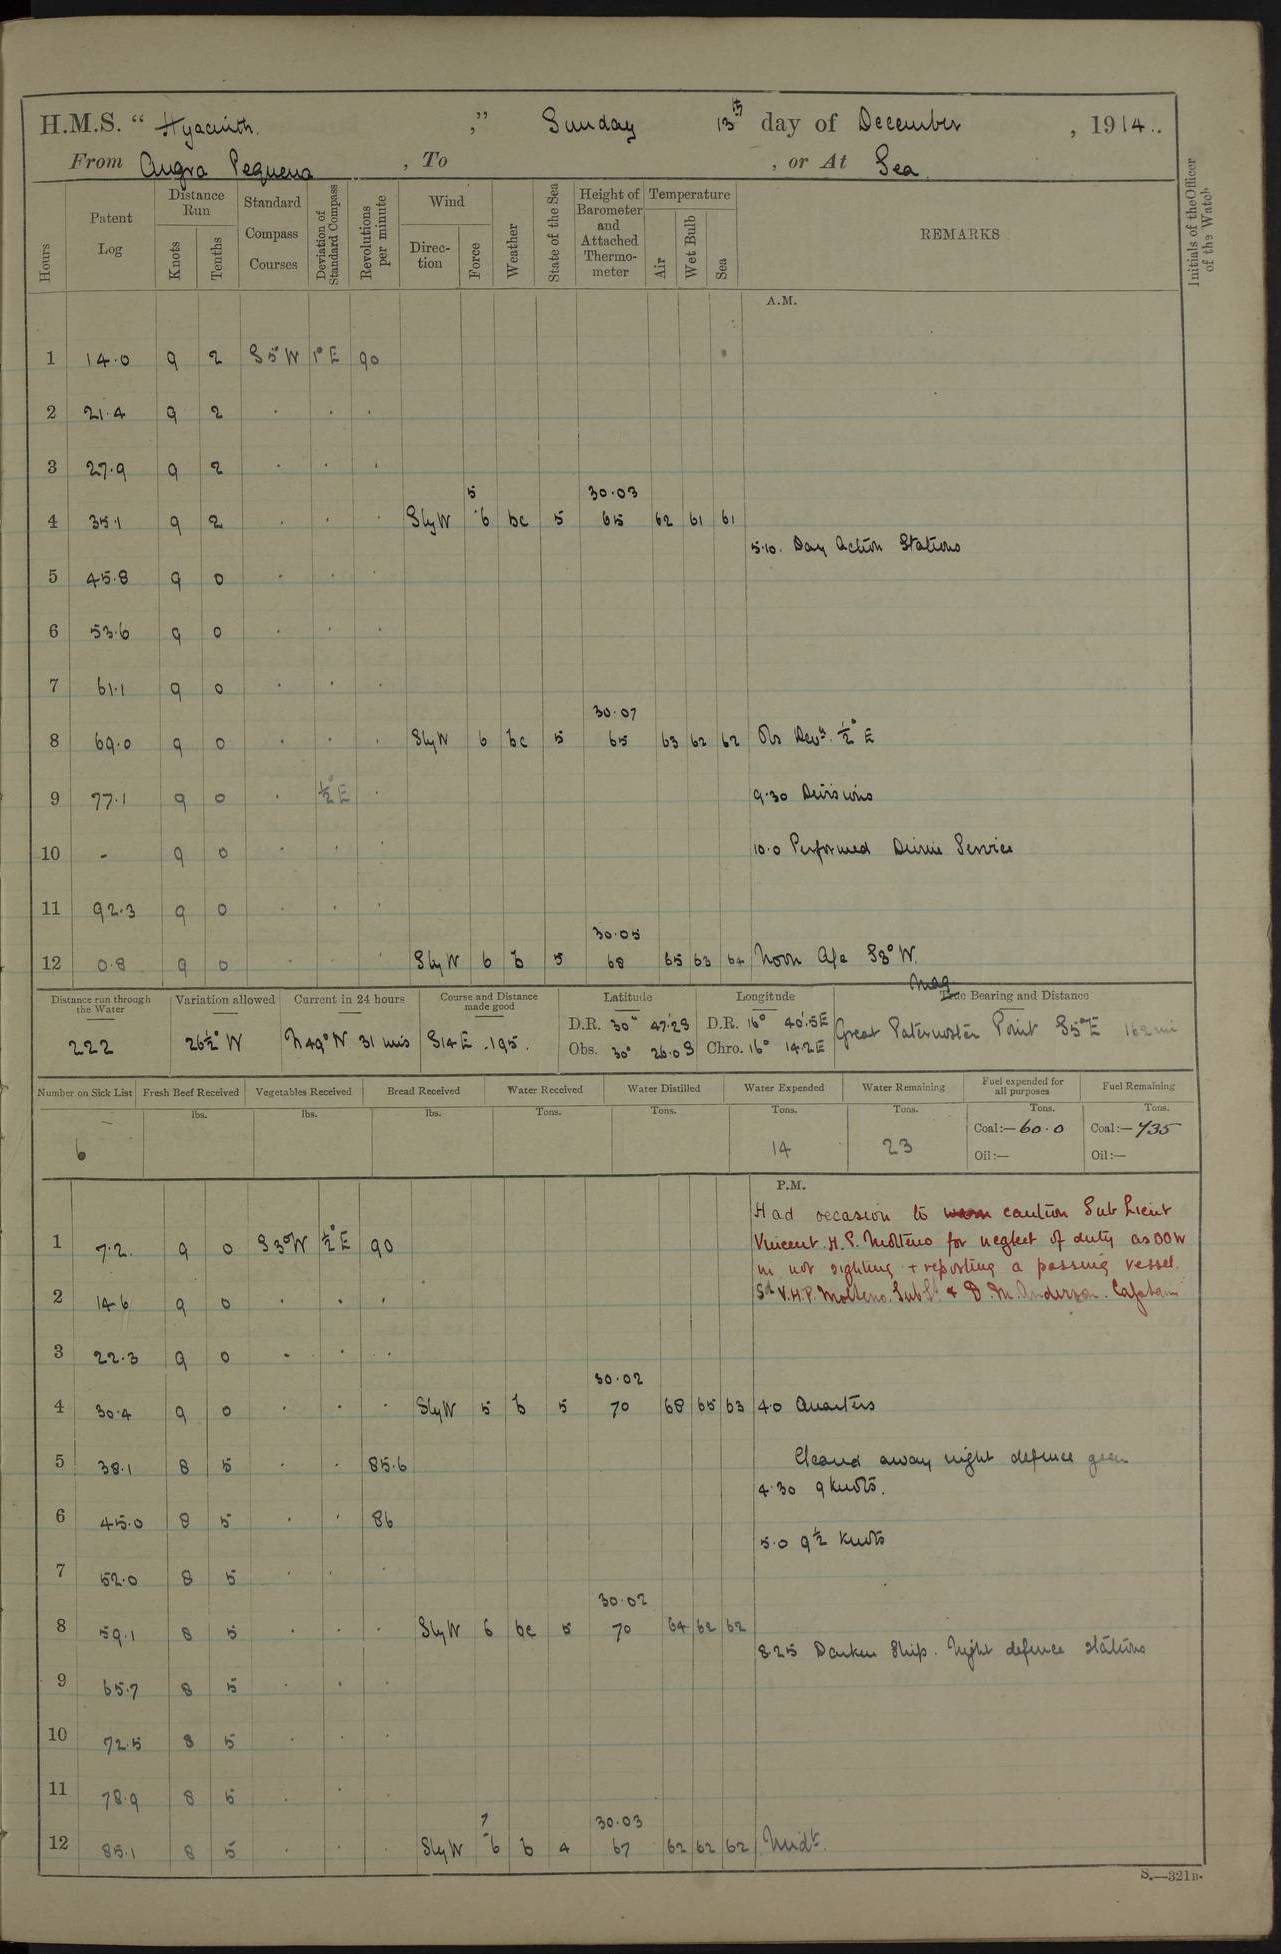 H.M.S. “Hyacinth ,” Sunday 13th day of December , 1914..
From Angra Pequena , To , or At Sea.
Hours Patent Log Distance Run Knots Tenths Standard Compass Courses Deviation of Standard Compass Revolutions per minute Wind Direction Force Weather State of the Sea Height of Barometer and Attached Thermometer Temperature Air Wet Bulb Sea REMARKS Initials of the Officer of the Watch
A.M.
1 14.0 9 2 S 5° W 1° E 90
2 21.4 9 2 . . .
3 27.9 9 2 . . .
5 30.03
4 35.1 9 2 . . . SlyW 6 bc 5 65 62 61 61
5.10. Day Action Stations
5 45.8 9 0 . . .
6 53.6 9 0 . . .
7 61.1 9 0 . . .
30.07
8 69.0 9 0 . . . SlyW 6 bc 5 65 63 62 62 Obs Devn. ½° E
9 77.1 9 0 . ½° E . 9.30 Divisions
10 - 9 0 . . . 10.0 Performed Divine Service
11 92.3 9 0 . . .
30.05
12 0.8 9 0 . . . SlyW 6 b 5 68 65 63 64 Noon A/c S3°W.
Distance run through the Water Variation allowed Current in 24 hours Course and Distance made good Latitude Longitude Mag True Bearing and Distance
222 26½° W N49°W 31 mis S14E .195. D.R. 30° 47'.2S D.R. 16° 40'.5E Great Paternoster Point S5°E 162 mi
Obs. 30° 26.0S Chro. 16° 14.2E
Number on Sick List Fresh Beef Received Vegetables Received Bread Received Water Received Water Distilled Water Expended Water Remaining Fuel expended for all purposes Fuel Remaining
lbs. lbs. lbs. Tons. Tons. Tons. Tons. Tons. Tons.
6 14 23 Coal:—60.0 Coal:—735
Oil:— Oil:—
P.M.
Had occasion to warn caution Sub Lieut
1 7.2. 9 0 S3°W ½° E 90 Vincent. H. P. Molteno for neglect of duty as OOW
in not sighting + reporting a passing vessel.
2 14.6 9 0 . . . Sd V.H.P. Molteno. Sub Lt. & D. M. Anderson. Captain
3 22.3 9 0 . . .
30.02
4 30.4 9 0 . . . SlyW 5 b 5 70 68 65 63 4.0 Quarters
5 38.1 8 5 . . 85.6 Cleared away night defence gear
4.30 9 knots.
6 45.0 8 5 . . 86
5.0 9½ knots
7 52.0 8 5 . . .
30.02
8 59.1 8 5 . . . SlyW 6 bc 5 70 64 62 62
8.25 Darken Ship. Night defence stations
9 65.7 8 5 . . .
10 72.5 8 5 . . .
11 78.9 8 5 . .
7 30.03
12 85.1 8 5 . . . SlyW 6 b 4 67 62 62 62 Midt.
S.—321B.